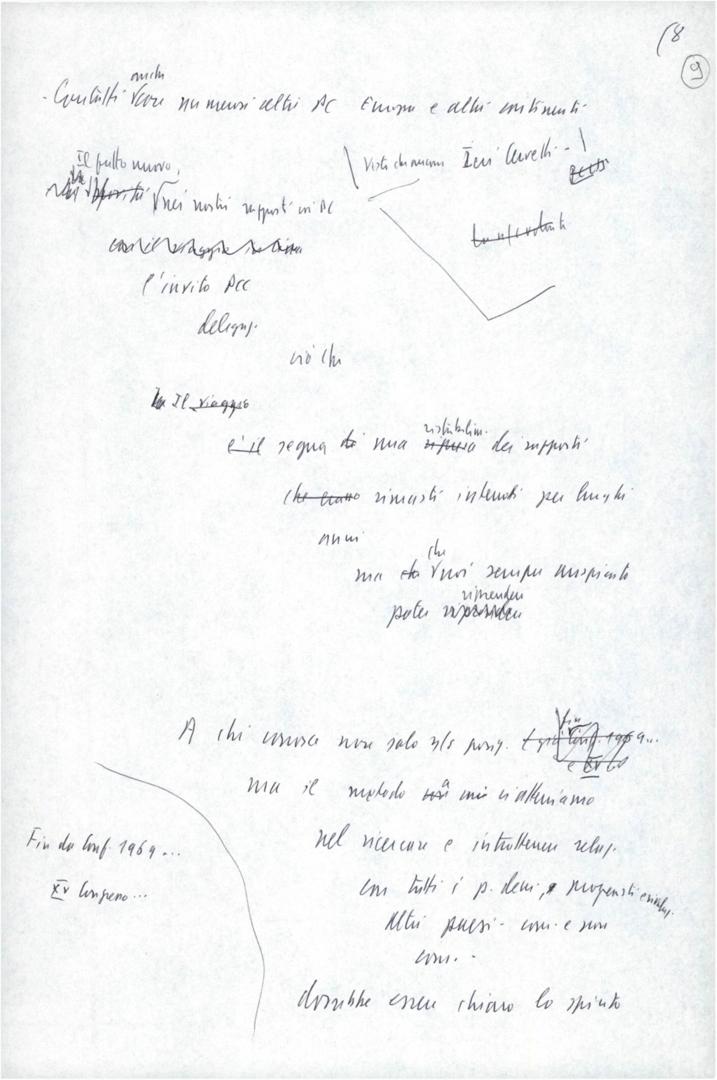 18
9
anche
- Contatti con numerosi altri PC Europa e altri continenti -
Il fatto nuovo,
nei nostri rapporti coi PC
Visto che nessuno Ieri Cervetti - 
l'invito PCC
delegaz.
ciò che
In Il viaggio
ristabilim.
è il segno di una ripresa dei rapporti
che erano rimasti interrotti per lunghi
anni
che
ma noi sempre auspicato
riprendere
poter
A chi conosce non solo n/s posiz.
1969...
e XV Co
ma il metodo a cui ci atteniamo
Fin da Conf. 1969...
nel ricercare e intrattenere relaz.
XV Congresso...
con tutti i p. dem., e progressisti
altri paesi - com. e non
com. -
dovrebbe essere chiaro lo spirito